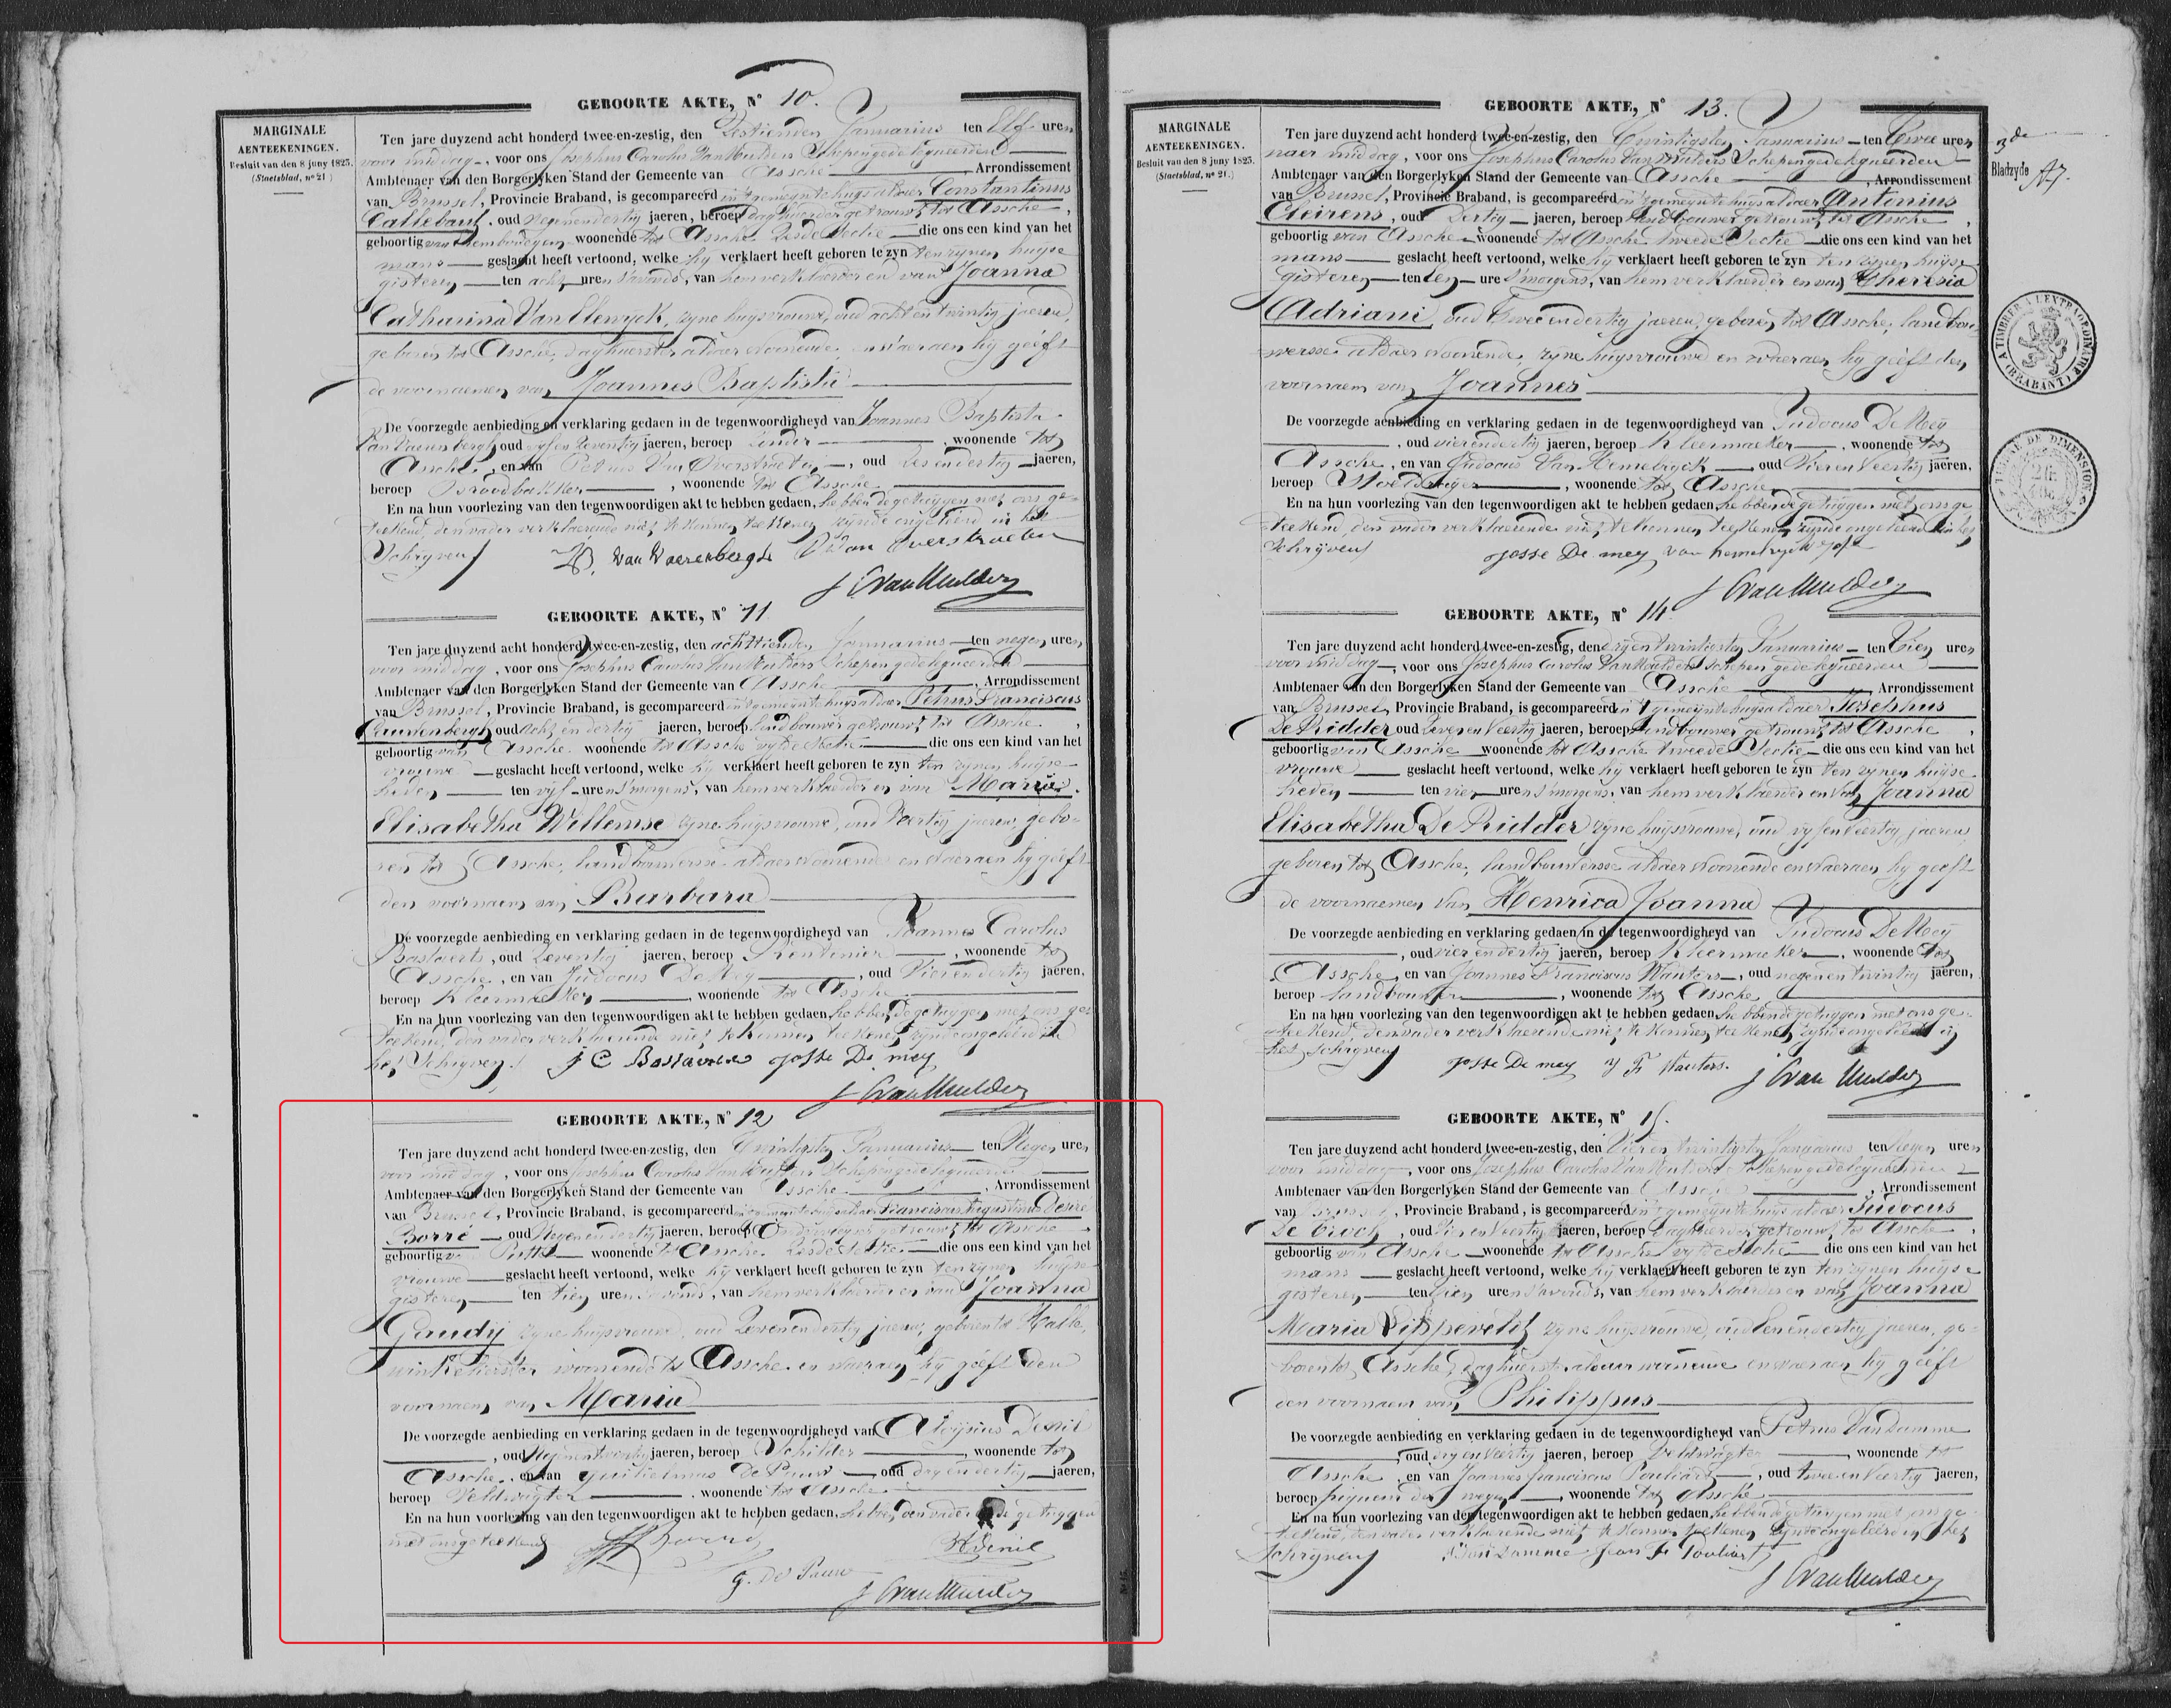 GEBOORTE AKTE, N° 10.
MARGINALE
AENTEEKENINGEN.
Besluit van den 8 juny 1823.
(Staetsblad, n° 21)
Ten jare duyzend acht honderd twee-en-zestig, den Zestienden Januarius ten Elf uren
voor middag, voor ons Josephus Carolus Van Mulders Schepen gedelegueerden
Ambtenaer van den Borgerlyken Stand der Gemeente van Assche, Arrondissement
van Brussel, Provincie Braband, is gecompareerd in 't gemeynte huys aldaer Constantinus
Callebaut, oud Negenendertig jaeren, beroep daghuerder getrouwt tot Assche,
geboortig van woonende tot Assche Zesde Sectie die ons een kind van het
mans geslacht heeft vertoond, welke hy verklaert heeft geboren te zyn ten zynen huyse
gisteren ten acht uren 's avonds, van hem verklaerder en van Joanna
Catharina Van Elewyck, zyne huysvrouwe, oud achtentwintig jaeren,
geboren tot Assche, daghuerster aldaer woonende en waeraen hy geeft
de voornaemen van Joannes Baptista
De voorzegde aenbieding en verklaring gedaen in de tegenwoordigheyd van Joannes Baptista
Van Vaerenbergh, oud vyfenzeventig jaeren, beroep, woonende tot
Assche, en van Petrus Van Overstraeten, oud zesendertig jaeren,
beroep Broodbakker, woonende tot Assche
En na hun voorlezing van den tegenwoordigen akt te hebben gedaen, hebben de getuygen met ons ge-
teekend, den vader verklaerende niet te konnen teekenen zynde ongeleerd in het
Schryven
Van Vaerenbergh Van Overstraeten
J C Van Mulders
GEBOORTE AKTE, N° 11
Ten jare duyzend acht honderd twee-en-zestig, den achttienden Januarius ten negen uren
voor middag, voor ons Josephus Carolus Van Mulders Schepen gedelegueerden
Ambtenaer van den Borgerlyken Stand der Gemeente van Assche, Arrondissement
van Brussel, Provincie Braband, is gecompareerd in 't gemeynte huys aldaer Petrus Franciscus
Cauwenbergh, oud acht en dertig jaeren, beroep landbouwer getrouwt tot Assche,
geboortig van Assche woonende tot Assche vyfde Sectie die ons een kind van het
vrouwe geslacht heeft vertoond, welke hy verklaert heeft geboren te zyn ten zynen huyse
heden ten vyf uren 's morgens, van hem verklaerder en van Maria
Elisabetha Willemse zyne huysvrouwe, oud Veertig jaeren, gebo-
ren tot Assche, landbouwersse aldaer woonende en waeraen hy geeft
den voornaem van Barbara
De voorzegde aenbieding en verklaring gedaen in de tegenwoordigheyd van Joannes Carolus
Bastaerts, oud Zeventig jaeren, beroep Rentenier, woonende tot
Assche, en van Judocus De Mey, oud Vierendertig jaeren,
beroep Kleermaeker, woonende tot Assche
En na hun voorlezing van den tegenwoordigen akt te hebben gedaen, hebben de getuygen met ons ge-
teekend, den vader verklaerende niet te konnen teekenen zynde ongeleerd in
het Schryven
J C Bastaerts Josse De mey
J C Van Mulders
GEBOORTE AKTE, N° 12
Ten jare duyzend acht honderd twee-en-zestig, den Twintigsten Januarius ten Negen uren
voor middag, voor ons Josephus Carolus Van Mulders Schepen gedelegueerden
Ambtenaer van den Borgerlyken Stand der Gemeente van Assche, Arrondissement
van Brussel, Provincie Braband, is gecompareerd in 't gemeynte huys aldaer Franciscus Augustinus Desiré
Borré, oud Negenendertig jaeren, beroep getrouwt tot Assche
geboortig van woonende tot Assche Zesde Sectie die ons een kind van het
vrouwe geslacht heeft vertoond, welke hy verklaert heeft geboren te zyn ten zynen huyse
gisteren ten tien uren 's avonds, van hem verklaerder en van Joanna
Gaudy zyne huysvrouwe, oud Zevenendertig jaeren, geboren tot Halle,
winkelierster woonende tot Assche en waeraen hy geeft den
voornaem van Maria
De voorzegde aenbieding en verklaring gedaen in de tegenwoordigheyd van Aloysius Denil
, oud jaeren, beroep Schilder, woonende tot
Assche, en van Guilielmus De Pauw, oud dryendertig jaeren,
beroep Veldwagter, woonende tot Assche
En na hun voorlezing van den tegenwoordigen akt te hebben gedaen, hebben den vader en de getuygen
met ons geteekend
Borré
A Denil
G. De Pauw
J C Van Mulders
GEBOORTE AKTE, N° 13.
MARGINALE
AENTEEKENINGEN.
Besluit van den 8 juny 1823.
(Staetsblad, n° 21.)
Ten jare duyzend acht honderd twee-en-zestig, den Twintigsten Januarius ten Twee uren
naer middag, voor ons Josephus Carolus Van Mulders Schepen gedelegueerden
Ambtenaer van den Borgerlyken Stand der Gemeente van Assche, Arrondissement
van Brussel, Provincie Braband, is gecompareerd in 't gemeynte huys aldaer Antonius
Cleirens, oud Dertig jaeren, beroep landbouwer getrouwt tot Assche,
geboortig van Assche woonende tot Assche tweede Sectie die ons een kind van het
mans geslacht heeft vertoond, welke hy verklaert heeft geboren te zyn ten zynen huyse
gisteren ten een ure 's morgens, van hem verklaerder en van Theresia
Adriani, oud Tweeendertig jaeren, geboren tot Assche, landbou-
wersse aldaer woonende, zyne huysvrouwe en waeraen hy geeft den
voornaem van Joannes
De voorzegde aenbieding en verklaring gedaen in de tegenwoordigheyd van Judocus De Mey
, oud vierendertig jaeren, beroep Kleermaeker, woonende tot
Assche, en van Judocus Van Hemelryck, oud Vierenveertig jaeren,
beroep, woonende tot Assche
En na hun voorlezing van den tegenwoordigen akt te hebben gedaen, hebben de getuygen met ons ge-
teekend, den vader verklaerende niet te konnen teekenen zynde ongeleerd in het
schryven
Josse De mey van hemelryck
J C Van Mulders
3de
Bladzyde A7.
A TIMBRER À L'EXTRAORDINAIRE
(BRABANT)
TIMBRE DE DIMENSION
GEBOORTE AKTE, N° 14
Ten jare duyzend acht honderd twee-en-zestig, den dryentwintigsten Januarius ten Tien uren
voor middag, voor ons Josephus Carolus Van Mulders Schepen gedelegueerden
Ambtenaer van den Borgerlyken Stand der Gemeente van Assche, Arrondissement
van Brussel, Provincie Braband, is gecompareerd in 't gemeynte huys aldaer Josephus
De Ridder oud Zevenenveertig jaeren, beroep landbouwer getrouwt tot Assche,
geboortig van Assche woonende tot Assche tweede Sectie die ons een kind van het
vrouwe geslacht heeft vertoond, welke hy verklaert heeft geboren te zyn ten zynen huyse
heden ten vier uren 's morgens, van hem verklaerder en van Joanna
Elisabetha De Ridder zyne huysvrouwe, oud vyfenveertig jaeren
geboren tot Assche, landbouwersse aldaer woonende en waeraen hy geeft
de voornaemen van Henrica Joanna
De voorzegde aenbieding en verklaring gedaen in de tegenwoordigheyd van Judocus De Mey
, oud vierendertig jaeren, beroep Kleermaeker, woonende tot
Assche, en van Joannes Franciscus Wauters, oud negenentwintig jaeren,
beroep landbouwer, woonende tot Assche
En na hun voorlezing van den tegenwoordigen akt te hebben gedaen, hebben de getuygen met ons ge-
teekend, den vader verklaerende niet te konnen teekenen zynde ongeleerd in
het schryven
Josse De mey J F Wauters.
J C Van Mulders
GEBOORTE AKTE, N° 15.
Ten jare duyzend acht honderd twee-en-zestig, den Vierentwintigsten Januarius ten Negen uren
voor middag, voor ons Josephus Carolus Van Mulders Schepen gedelegueerden
Ambtenaer van den Borgerlyken Stand der Gemeente van Assche, Arrondissement
van Brussel, Provincie Braband, is gecompareerd in 't gemeynte huys aldaer Judocus
De Cock, oud jaeren, beroep daghuerder getrouwt tot Assche,
geboortig van Assche woonende tot Assche vyfde Sectie die ons een kind van het
mans geslacht heeft vertoond, welke hy verklaert heeft geboren te zyn ten zynen huyse
gisteren ten tien uren 's avonds, van hem verklaerder en van Joanna
Maria Lippevelt zyne huysvrouwe, oud eenendertig jaeren, ge-
boren tot Assche, daghuerster aldaer woonende en waeraen hy geeft
den voornaem van Philippus
De voorzegde aenbieding en verklaring gedaen in de tegenwoordigheyd van Petrus Van Damme
, oud dryenveertig jaeren, beroep Veldwagter, woonende tot
Assche, en van Joannes franciscus Pouliart, oud tweeenveertig jaeren,
beroep piqueur der wegen, woonende tot Assche
En na hun voorlezing van den tegenwoordigen akt te hebben gedaen, hebben de getuygen met ons ge-
teekend, den vader verklaerende niet te konnen teekenen zynde ongeleerd in het
schryven
Van Damme Jean F Pouliart
J C Van Mulders